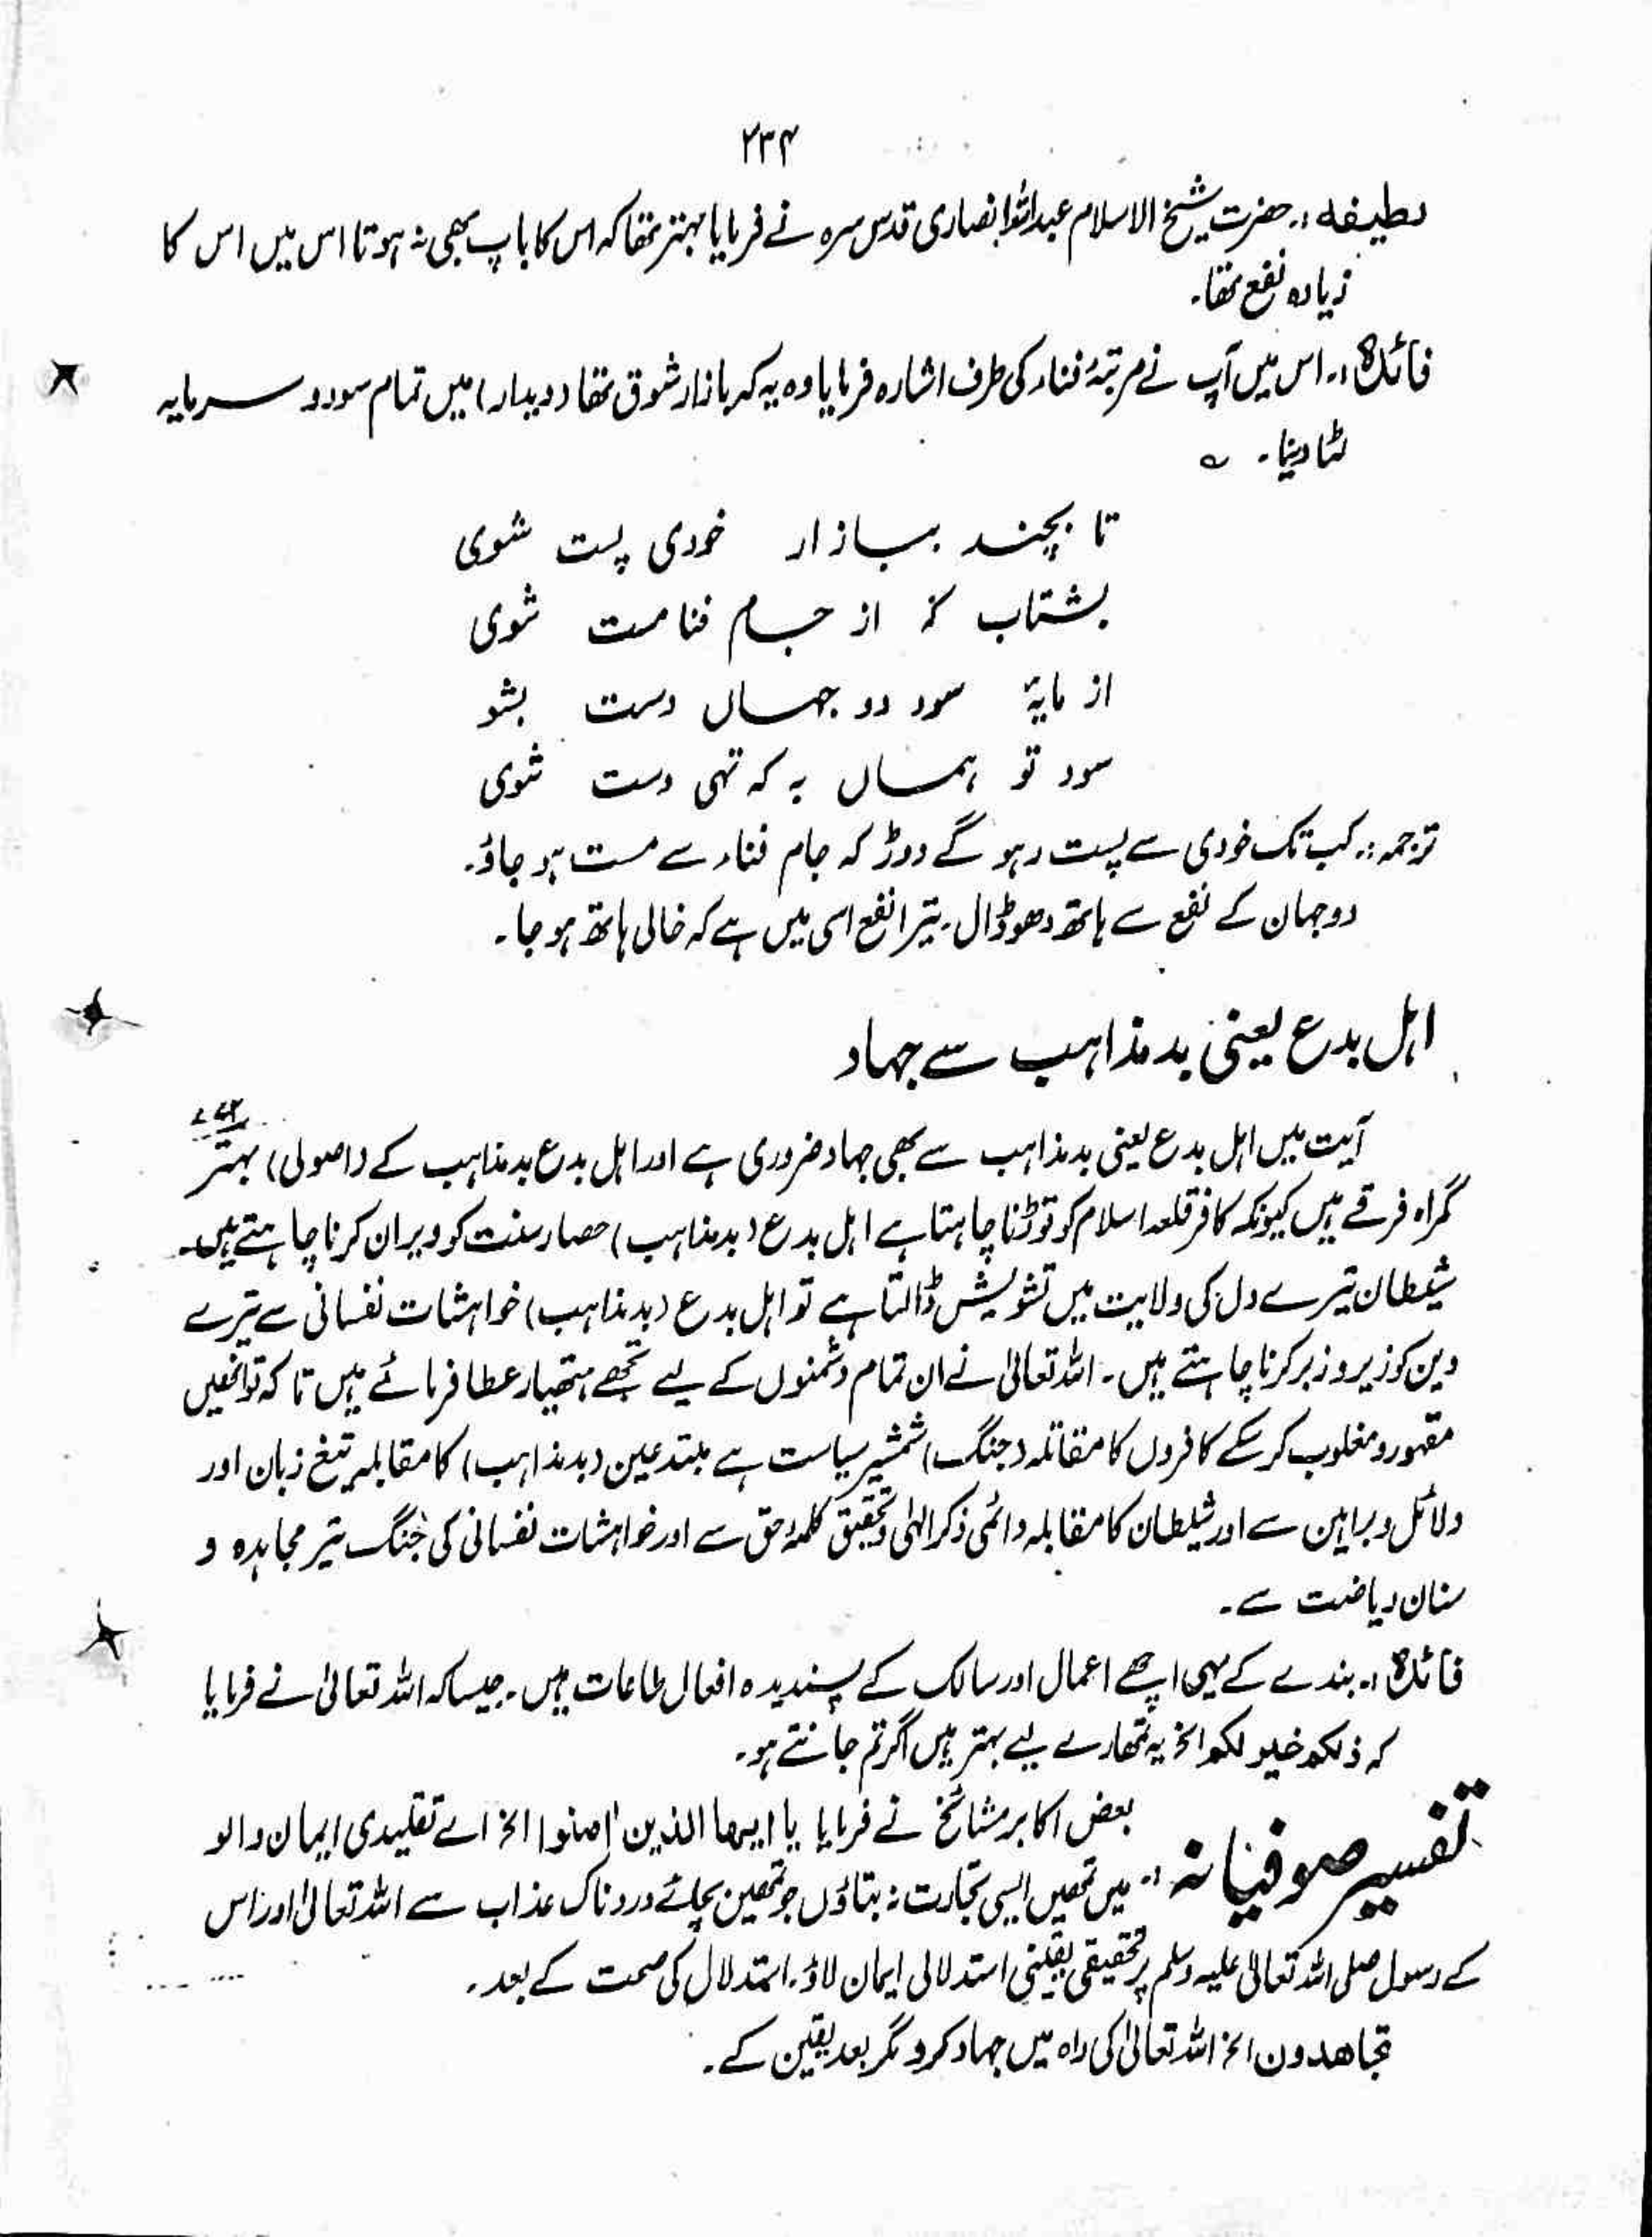 ۲۳۴
لطیفہ :۔ حضرت شیخ الاسلام عبداللہ انصاری قدس سرہ نے فرمایا بہتر تھا کہ اس کا باپ بھی نہ ہوتا اس میں اس کا
زیادہ نفع تھا۔
فائدہ :۔ اس میں آپ نے مرتبۂ فناء کی طرف اشارہ فرمایا وہ یہ کہ بازار شوق تھا (دیدار) میں تمام سود و سرمایہ
لٹا دینا۔ ؎
تا بچند ببازار خودی پست شوی
بشتاب کہ از جام فنا مست شوی
از مایۂ سود دو جہاں دست بشو
سود تو ہماں بہ کہ تہی دست شوی
ترجمہ :۔ کب تک خودی سے پست رہو گے دوڑ کہ جام فناء سے مست ہو جاؤ۔
دو جہان کے نفع سے ہاتھ دھو ڈال۔ تیرا نفع اسی میں ہے کہ خالی ہاتھ ہو جا۔
اہل بدع یعنی بد مذاہب سے جہاد
آیت میں اہل بدع یعنی بدمذاہب سے بھی جہاد ضروری ہے اور اہل بدع بدمذاہب کے (اصولی) بہتر
گمراہ فرقے ہیں کیونکہ کافر قلعہ اسلام کو توڑنا چاہتا ہے اہل بدع (بدمذاہب) حصار سنت کو ویران کرنا چاہتے ہیں۔
شیطان تیرے دل کی ولایت میں تشویش ڈالتا ہے تو اہل بدع (بدمذاہب) خواہشات نفسانی سے تیرے
دین کو زیر و زبر کرنا چاہتے ہیں۔ اللہ تعالیٰ نے ان تمام دشمنوں کے لیے تجھے ہتھیار عطا فرمائے ہیں تا کہ تو انھیں
مقہور و مغلوب کر سکے کافروں کا مقاتلہ (جنگ) شمشیر سیاست ہے مبتدعین (بدمذاہب) کا مقابلہ تیغ زبان اور
دلائل و براہین سے اور شیطان کا مقابلہ دائمی ذکر الٰہی و تحقیق کلمۂ حق سے اور خواہشات نفسانی کی جنگ تیر مجاہدہ و
سنان ریاضت سے۔
فائدہ :۔ بندے کے یہی اچھے اعمال اور سالک کے پسندیدہ افعال طاعات ہیں۔ جیسا کہ اللہ تعالیٰ نے فرمایا
کہ ذلکم خیر لکم الخ یہ تمھارے لیے بہتر ہیں اگر تم جانتے ہو۔
تفسیر صوفیانہ :۔ بعض اکابر مشائخ نے فرمایا یا ایہا الذین اٰمنوا الخ اے تقلیدی ایمان والو
میں تمھیں ایسی تجارت نہ بتاؤں جو تمھیں بچائے دردناک عذاب سے اللہ تعالیٰ اور اس
کے رسول صلی اللہ تعالیٰ علیہ وسلم پر تحقیقی یقینی استدلالی ایمان لاؤ۔ استدلال کی صحت کے بعد۔
تجاھدون الخ اللہ تعالیٰ کی راہ میں جہاد کرو مگر بعد یقین کے۔